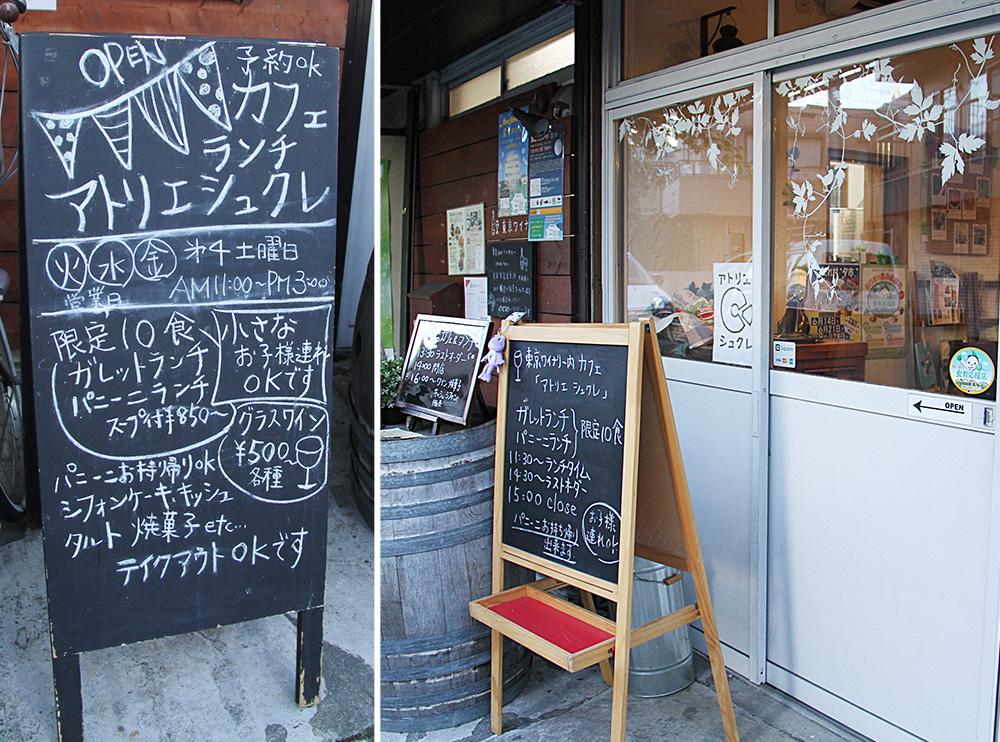 OPEN
予約OK
カフェ
ランチ
アトリエシュクレ
火 水 金 オ4土曜日
営業日
AM11:00〜PM3:00
限定10食
ガレットランチ
パニーニランチ
スープ付¥850〜
小さな
お子様連れ
OKです
グラスワイン
¥500〜
各種
パニーニお持帰りOK
シフォンケーキ、キッシュ
タルト 焼菓子etc…
テイクアウトOKです
東京ワイナ
14:00閉店
東京ワイナリー内カフェ
「アトリエ シュクレ」
ガレットランチ
パニーニランチ
限定10食
11:30〜ランチタイム
14:30〜ラストオーダー
15:00 close
パニーニお持ち帰り
出来ます。
お子様
連れOK!
アトリエ
シュクレ
6月14日
6月21日
Square
食育応援店
OPEN